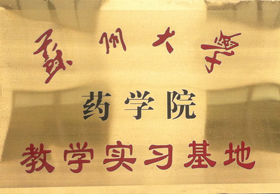 蘇州大學
药学院
教学实习基地